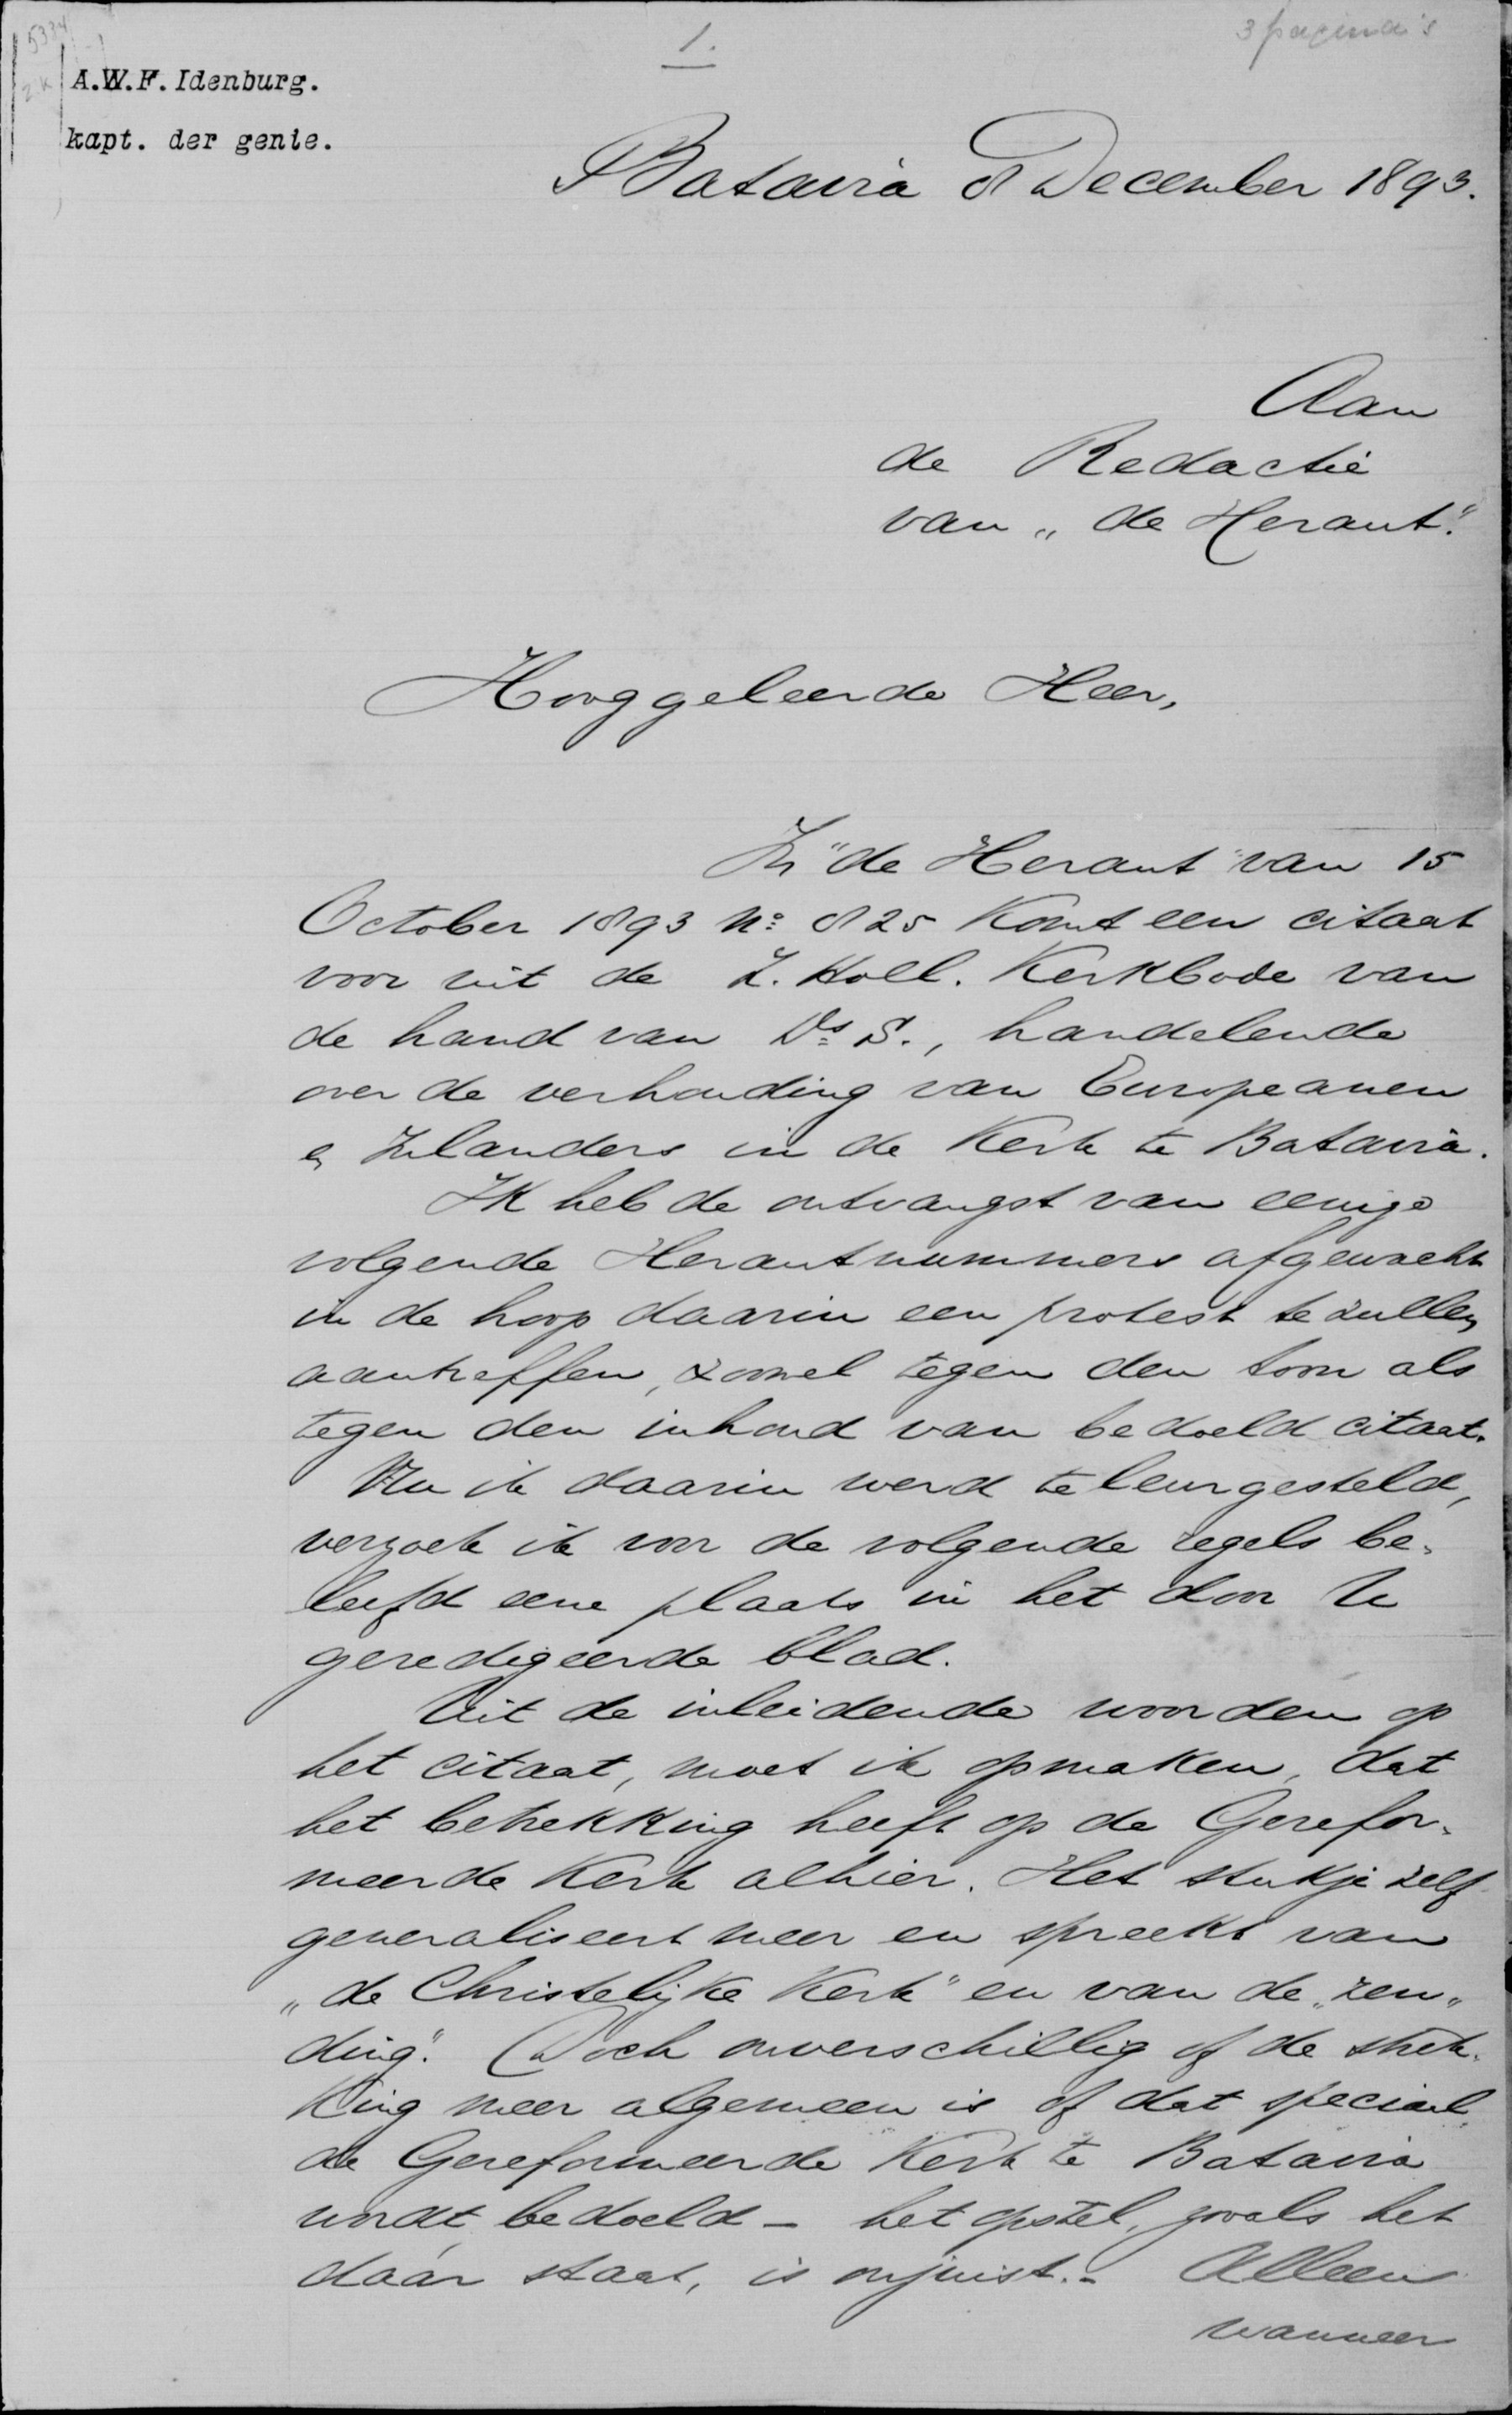 5334
1.
3 pagina's
A.W.F. Idenburg.
kapt. der genie.
Batavia 8 December 1893.
Aan
de Redactie
van „de Heraut".
Hooggeleerde Heer,
In "de Heraut" van 15
October 1893 No: 825 komt een citaat
voor uit de Z. Holl. Kerkbode van
de hand van Ds S., handelende
over de verhouding van Europeanen
en Inlanders in de Kerk te Batavia.
Ik heb de ontvangst van eenige
volgende Herautnummers afgewacht
in de hoop daarin een protest te zullen
aantreffen, zoowel tegen den toon als
tegen den inhoud van bedoeld citaat.
Nu ik daarin werd teleurgesteld,
verzoek ik voor de volgende regels be-
leefd eene plaats in het door U
geredigeerde blad.
Uit de inleidende woorden op
het citaat, moet ik opmaken, dat
het betrekking heeft op de Gerefor-
meerde Kerk alhier. Het stukje zelf
generaliseert meer en spreekt van
„de Christelijke Kerk" en van de „zen-
ding". Doch onverschillig of de strek-
king meer algemeen is of dat speciaal
de Gereformeerde Kerk te Batavia
wordt bedoeld - het opstel, zooals het
daár staat, is onjuist.- Alleen
wanneer